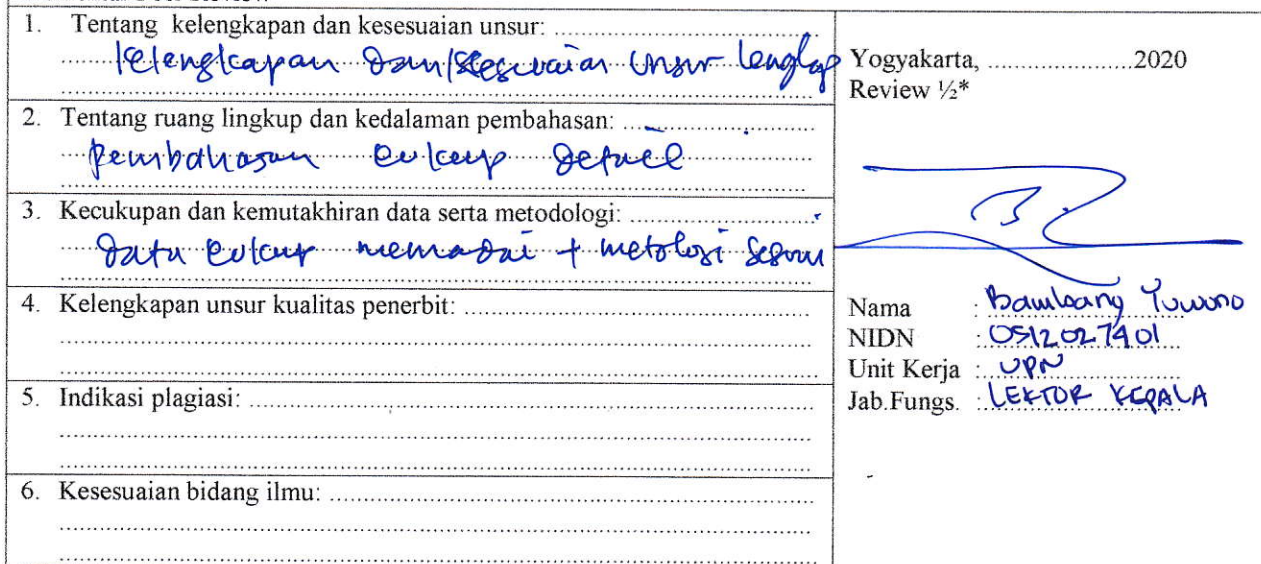 1. Tentang kelengkapan dan kesesuaian unsur: ........................................
kelengkapan dan kesesuaian unsur lengkap
2. Tentang ruang lingkup dan kedalaman pembahasan: ........................
Pembahasan cukup detail
3. Kecukupan dan kemutakhiran data serta metodologi: .......................
Data cukup memadai + metologi sesuai
4. Kelengkapan unsur kualitas penerbit: ...............................................
5. Indikasi plagiasi: ..............................................................................
6. Kesesuaian bidang ilmu: ..................................................................
Yogyakarta, ......................2020
Review ½*
Nama : Bambang Yuwono
NIDN : 0512027401
Unit Kerja : UPN
Jab.Fungs. : LEKTOR KEPALA